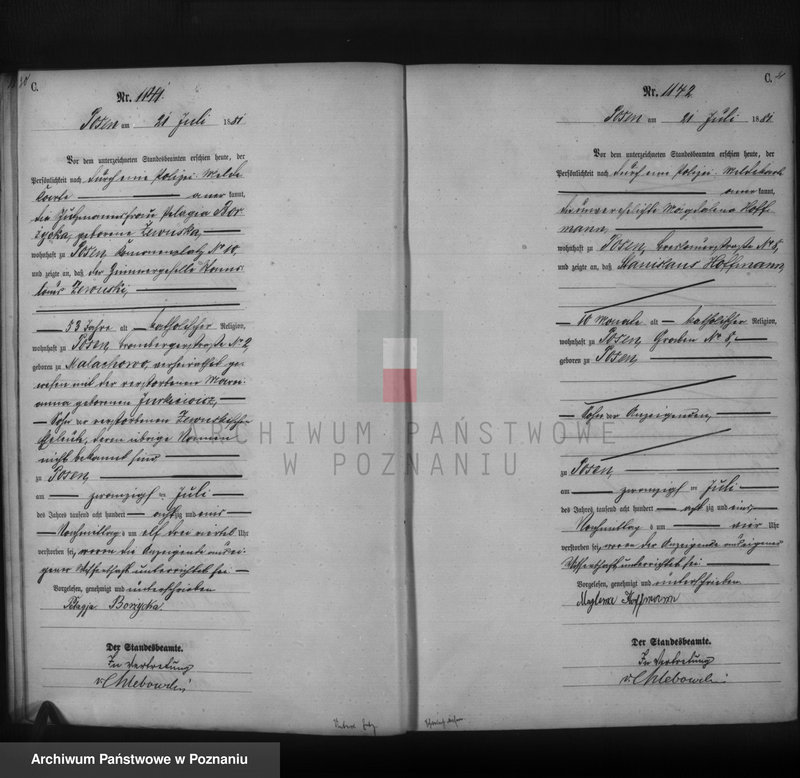 C.
Nr. 1141.
Posen am 21 Juli 1881
Vor dem unterzeichneten Standesbeamten erschien heute, der
Persönlichkeit nach durch eine Polizei-Melde
karte aner kannt,
die
geborene
wohnhaft zu Posen, No 10,
und zeigte an, daß der Zimmergeselle
53 Jahre alt katholischer Religion,
wohnhaft zu Posen, Brombergerstraße No 2,
geboren zu Malachowo, verheirathet ge
wesen mit der verstorbenen Mari
anna geborenen Jurkiewicz,
Sohn der verstorbenen
Eheleute, deren übrige Namen
nicht bekannt sind
zu Posen,
am zwanzigsten Juli
des Jahres tausend acht hundert acht zig und eins
Nachmittag s um elf drei viertel Uhr
verstorben sei, wovon die Anzeigende aus ei
gener Wissenschaft unterrichtet sei
Vorgelesen, genehmigt und unterschrieben
Der Standesbeamte.
In Vertretung
v. Chlebowski
C.
Nr. 1142
Posen am 21 Juli 1881
Vor dem unterzeichneten Standesbeamten erschien heute, der
Persönlichkeit nach durch eine Polizei-Meldekarte
aner kannt,
die unverehelichte Magdalena Hoff
mann
wohnhaft zu Posen, No 8,
und zeigte an, daß Stanislaus Hoffmann,
10 Monate alt katholischer Religion,
wohnhaft zu Posen, Graben No 8,
geboren zu Posen,
Sohn der Anzeigenden,
zu Posen,
am zwanzigsten Juli
des Jahres tausend acht hundert acht zig und eins,
Nachmittag s um vier Uhr
verstorben sei, wovon die Anzeigende aus eigener
Wissenschaft unterrichtet sei
Vorgelesen, genehmigt und unterschrieben
Hoffmann
Der Standesbeamte.
In Vertretung
v. Chlebowski
ARCHIWUM PAŃSTWOWE
W POZNANIU
Archiwum Państwowe w Poznaniu